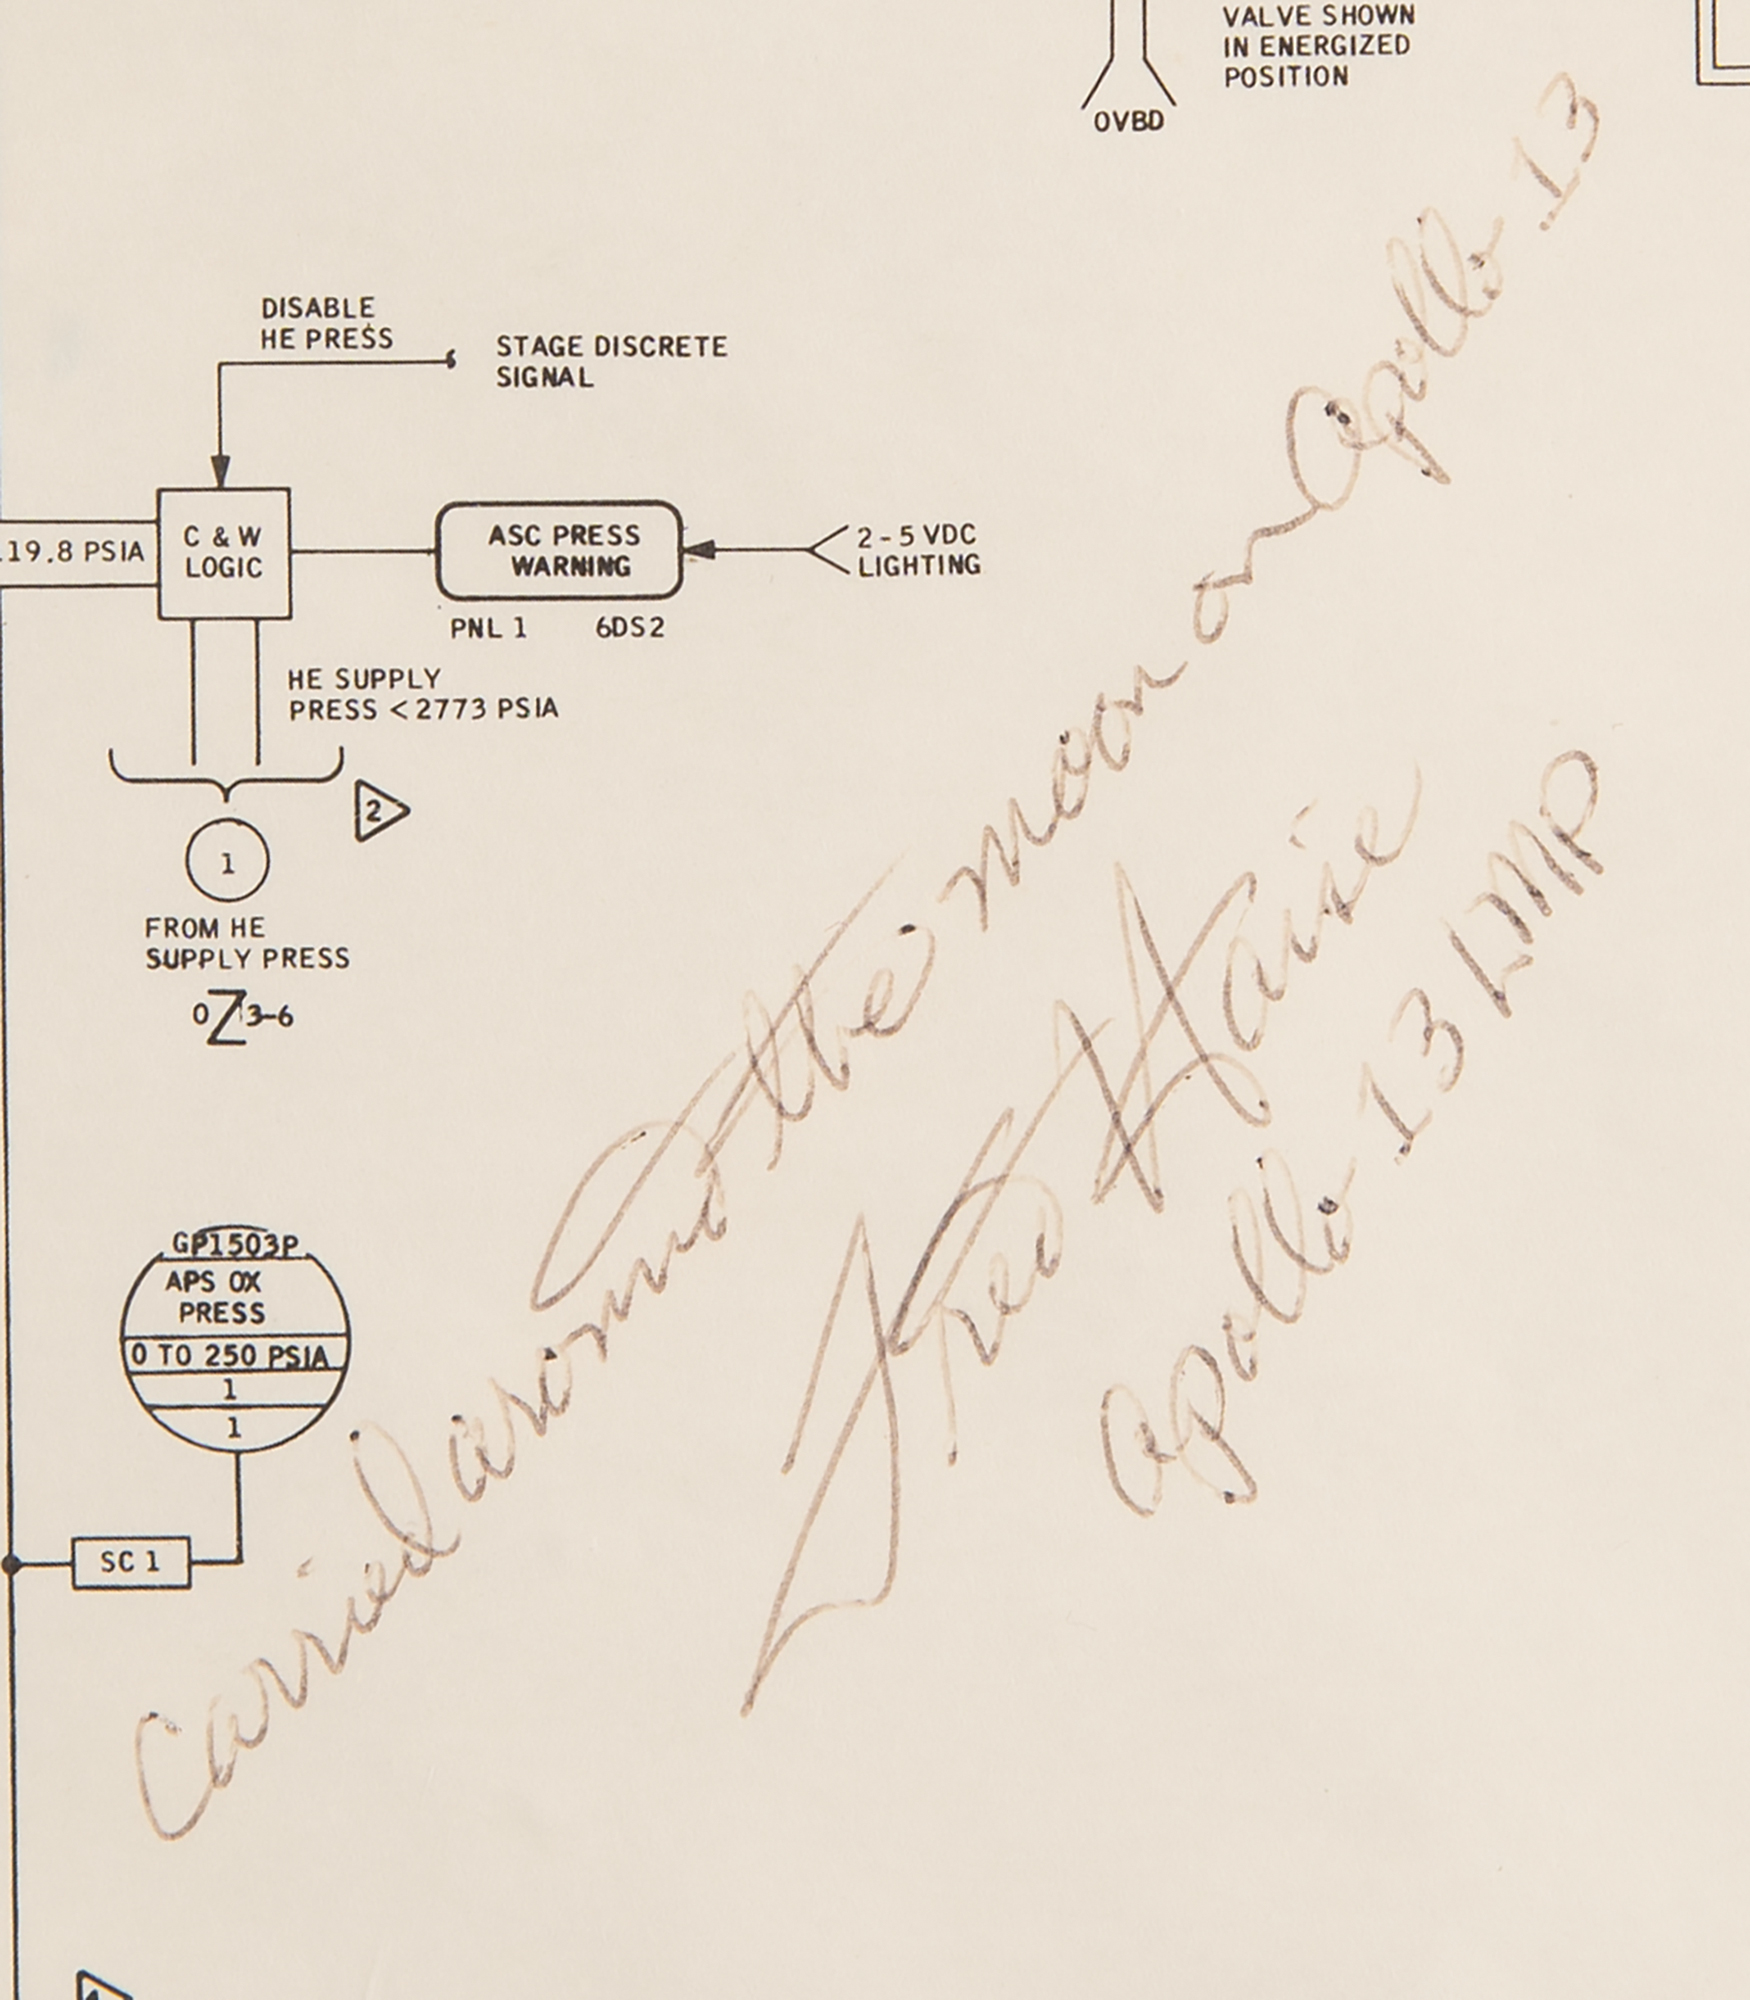 VALVE SHOWN
IN ENERGIZED
POSITION
OVBD
DISABLE
HE PRESS
STAGE DISCRETE
SIGNAL
19.8 PSIA
C & W
LOGIC
ASC PRESS
WARNING
2-5 VDC
LIGHTING
PNL 1 6DS2
HE SUPPLY
PRESS <2773 PSIA
2
1
FROM HE
SUPPLY PRESS
0Z3-6
GP1503P
APS OX
PRESS
0 TO 250 PSIA
1
1
SC 1
Carried around the moon on Apollo 13
Fred Haise
Apollo 13 LMP